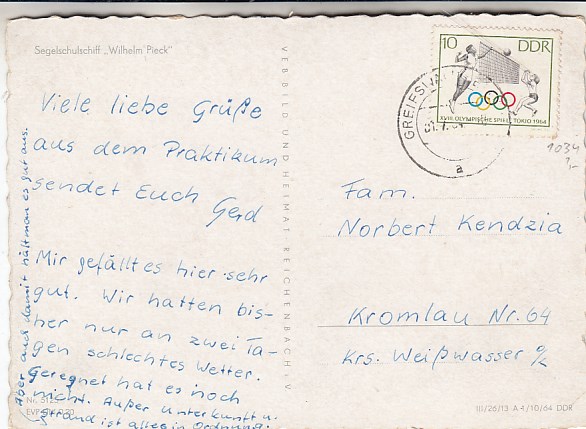 Segelschulschiff „Wilhelm Pieck"
Viele liebe Grüße
aus dem Praktikum
sendet Euch
Gerd
Mir gefällt es hier sehr
gut. Wir hatten bis-
her nur an zwei Ta-
gen schlechtes Wetter.
Geregnet hat es noch
nicht. Außer Unterkunft u.
Strand ist alles in Ordnung.
Aber auch damit hält man es gut aus.
VEB BILD UND HEIMAT REICHENBACH I. V.
10 DDR
XVIII. OLYMPISCHE SPIELE TOKIO 1964
GREIFSWALD
a
1034
Fam.
Norbert Kendzia
Kromlau Nr. 64
Krs. Weißwasser o/L
III/26/13 A 4/10/64 DDR